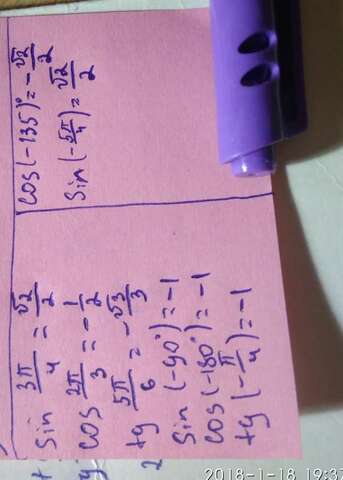 sin 3π/4 = √2/2
cos 2π/3 = -1/2
tg 5π/6 = -√3/3
sin(-90°) = -1
cos(-180°) = -1
tg(-π/4) = -1
cos(-135)° = -√2/2
sin(-5π/4) = √2/2
2018-1-18 19:37